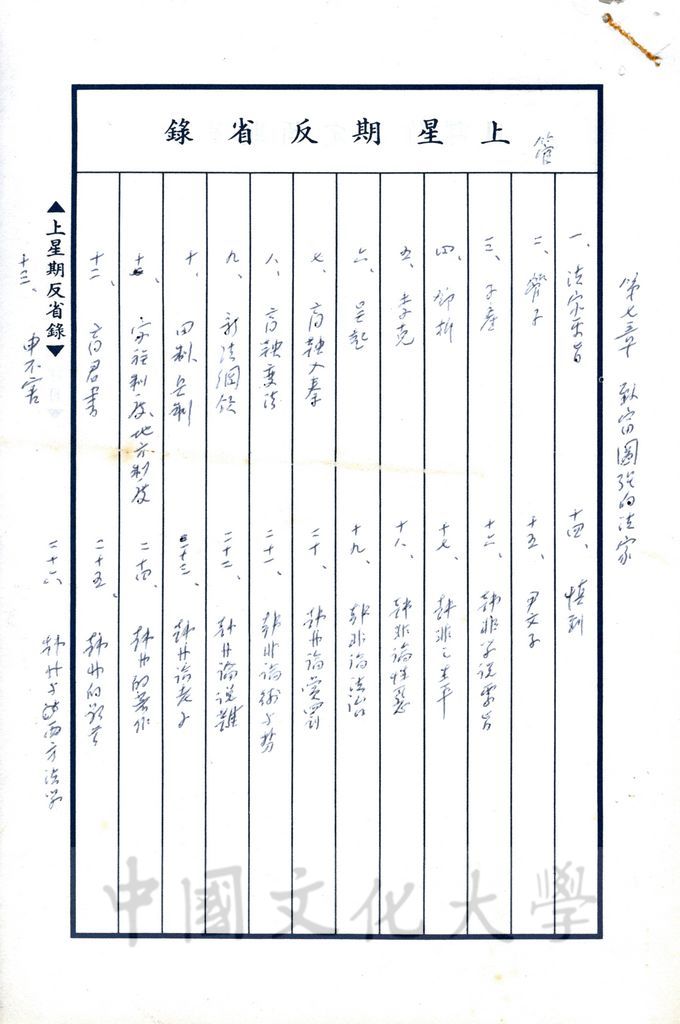 上星期反省錄
管
第七章 致富圖強的法家
一、法家要旨
二、管子
三、子產
四、鄧析
五、李克
六、吳起
七、商鞅入秦
八、商鞅變法
九、新法綱領
十、田制兵制
十一、家族制度地方制度
十二、商君書
十三、申不害
十四、慎到
十五、尹文子
十六、韓非學說要旨
十七、韓非之生平
十八、韓非論性惡
十九、韓非論法治
二十、韓非論賞罰
二十一、韓非論術與勢
二十二、韓非論說難
二十三、韓非論老子
二十四、韓非的著作
二十五、韓非的
二十六、韓非與西方法學
▲上星期反省錄▼
中國文化大學